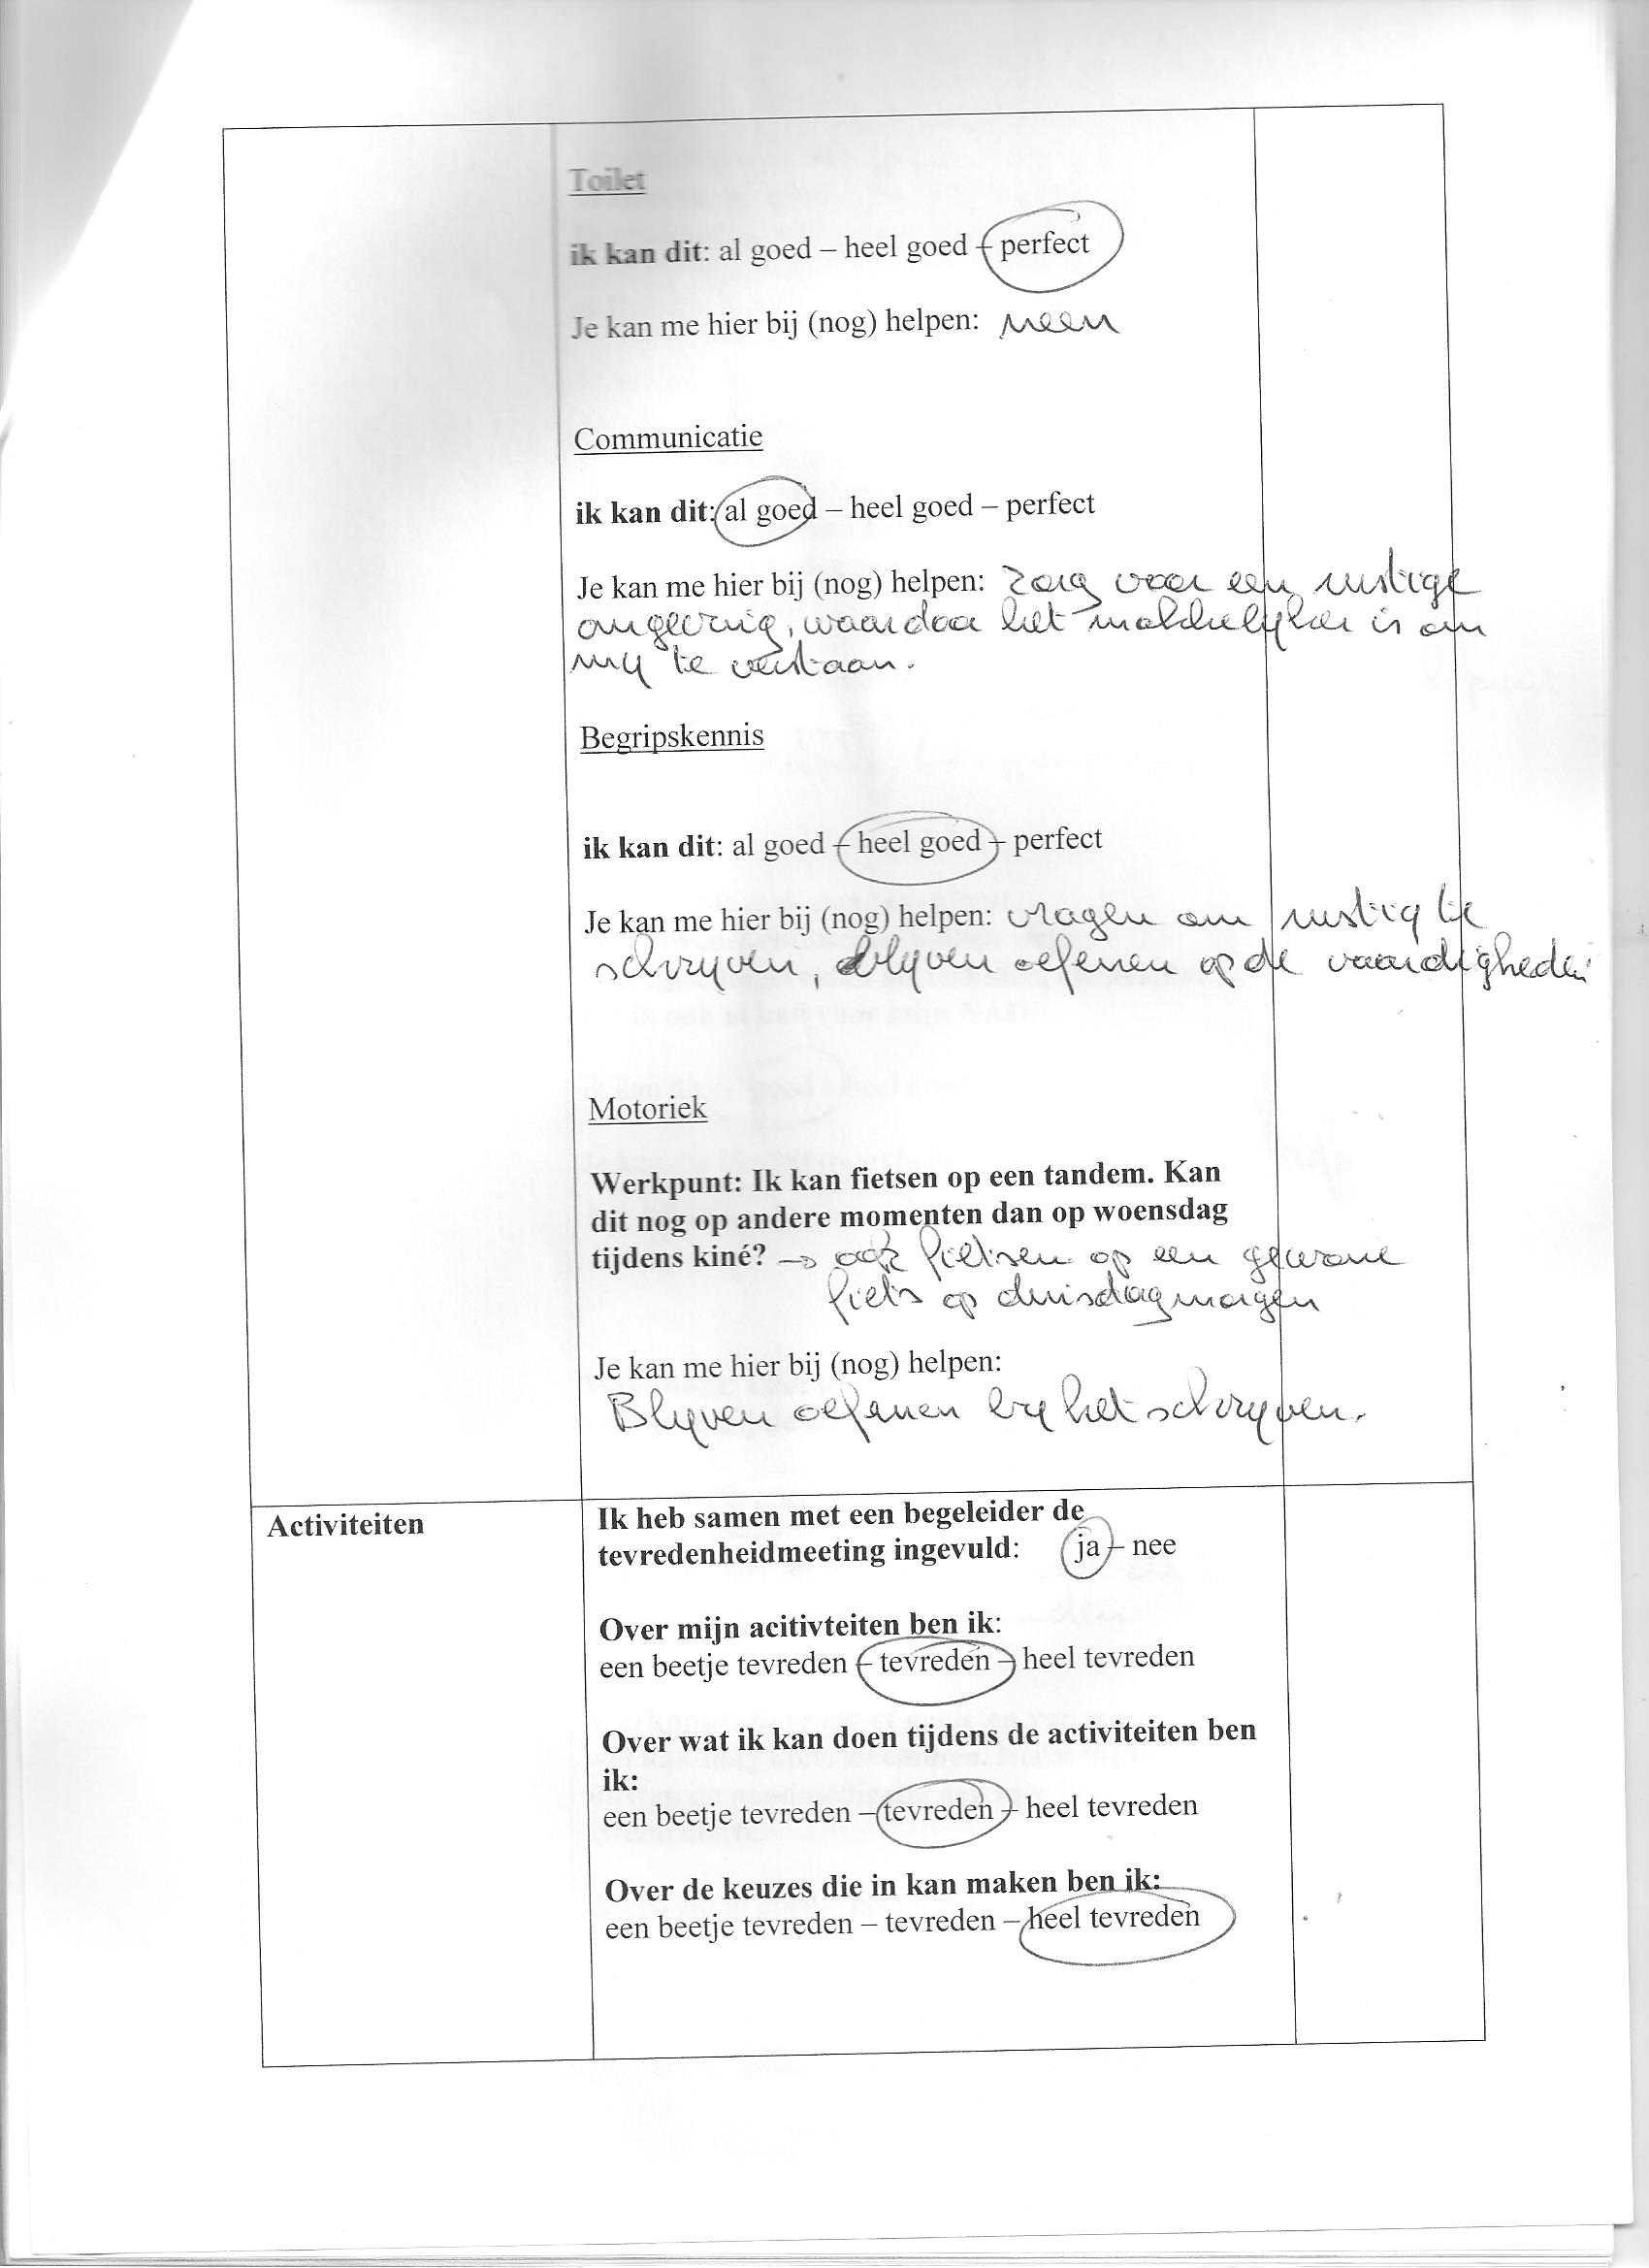 Toilet
ik kan dit: al goed – heel goed – perfect
Je kan me hier bij (nog) helpen: neen
Communicatie
ik kan dit: al goed – heel goed – perfect
Je kan me hier bij (nog) helpen: Zorg voor een rustige
omgeving, waardoor het makkelijker is om
mij te verstaan.
Begripskennis
ik kan dit: al goed – heel goed – perfect
Je kan me hier bij (nog) helpen: vragen om rustig te
schrijven, blijven oefenen op de vaardigheden
Motoriek
Werkpunt: Ik kan fietsen op een tandem. Kan
dit nog op andere momenten dan op woensdag
tijdens kiné? → ook fietsen op een gewone
fiets op dinsdagmorgen
Je kan me hier bij (nog) helpen:
Blijven oefenen bij het schrijven.
Activiteiten
Ik heb samen met een begeleider de
tevredenheidmeeting ingevuld: ja – nee
Over mijn acitivteiten ben ik:
een beetje tevreden – tevreden – heel tevreden
Over wat ik kan doen tijdens de activiteiten ben
ik:
een beetje tevreden – tevreden – heel tevreden
Over de keuzes die in kan maken ben ik:
een beetje tevreden – tevreden – heel tevreden